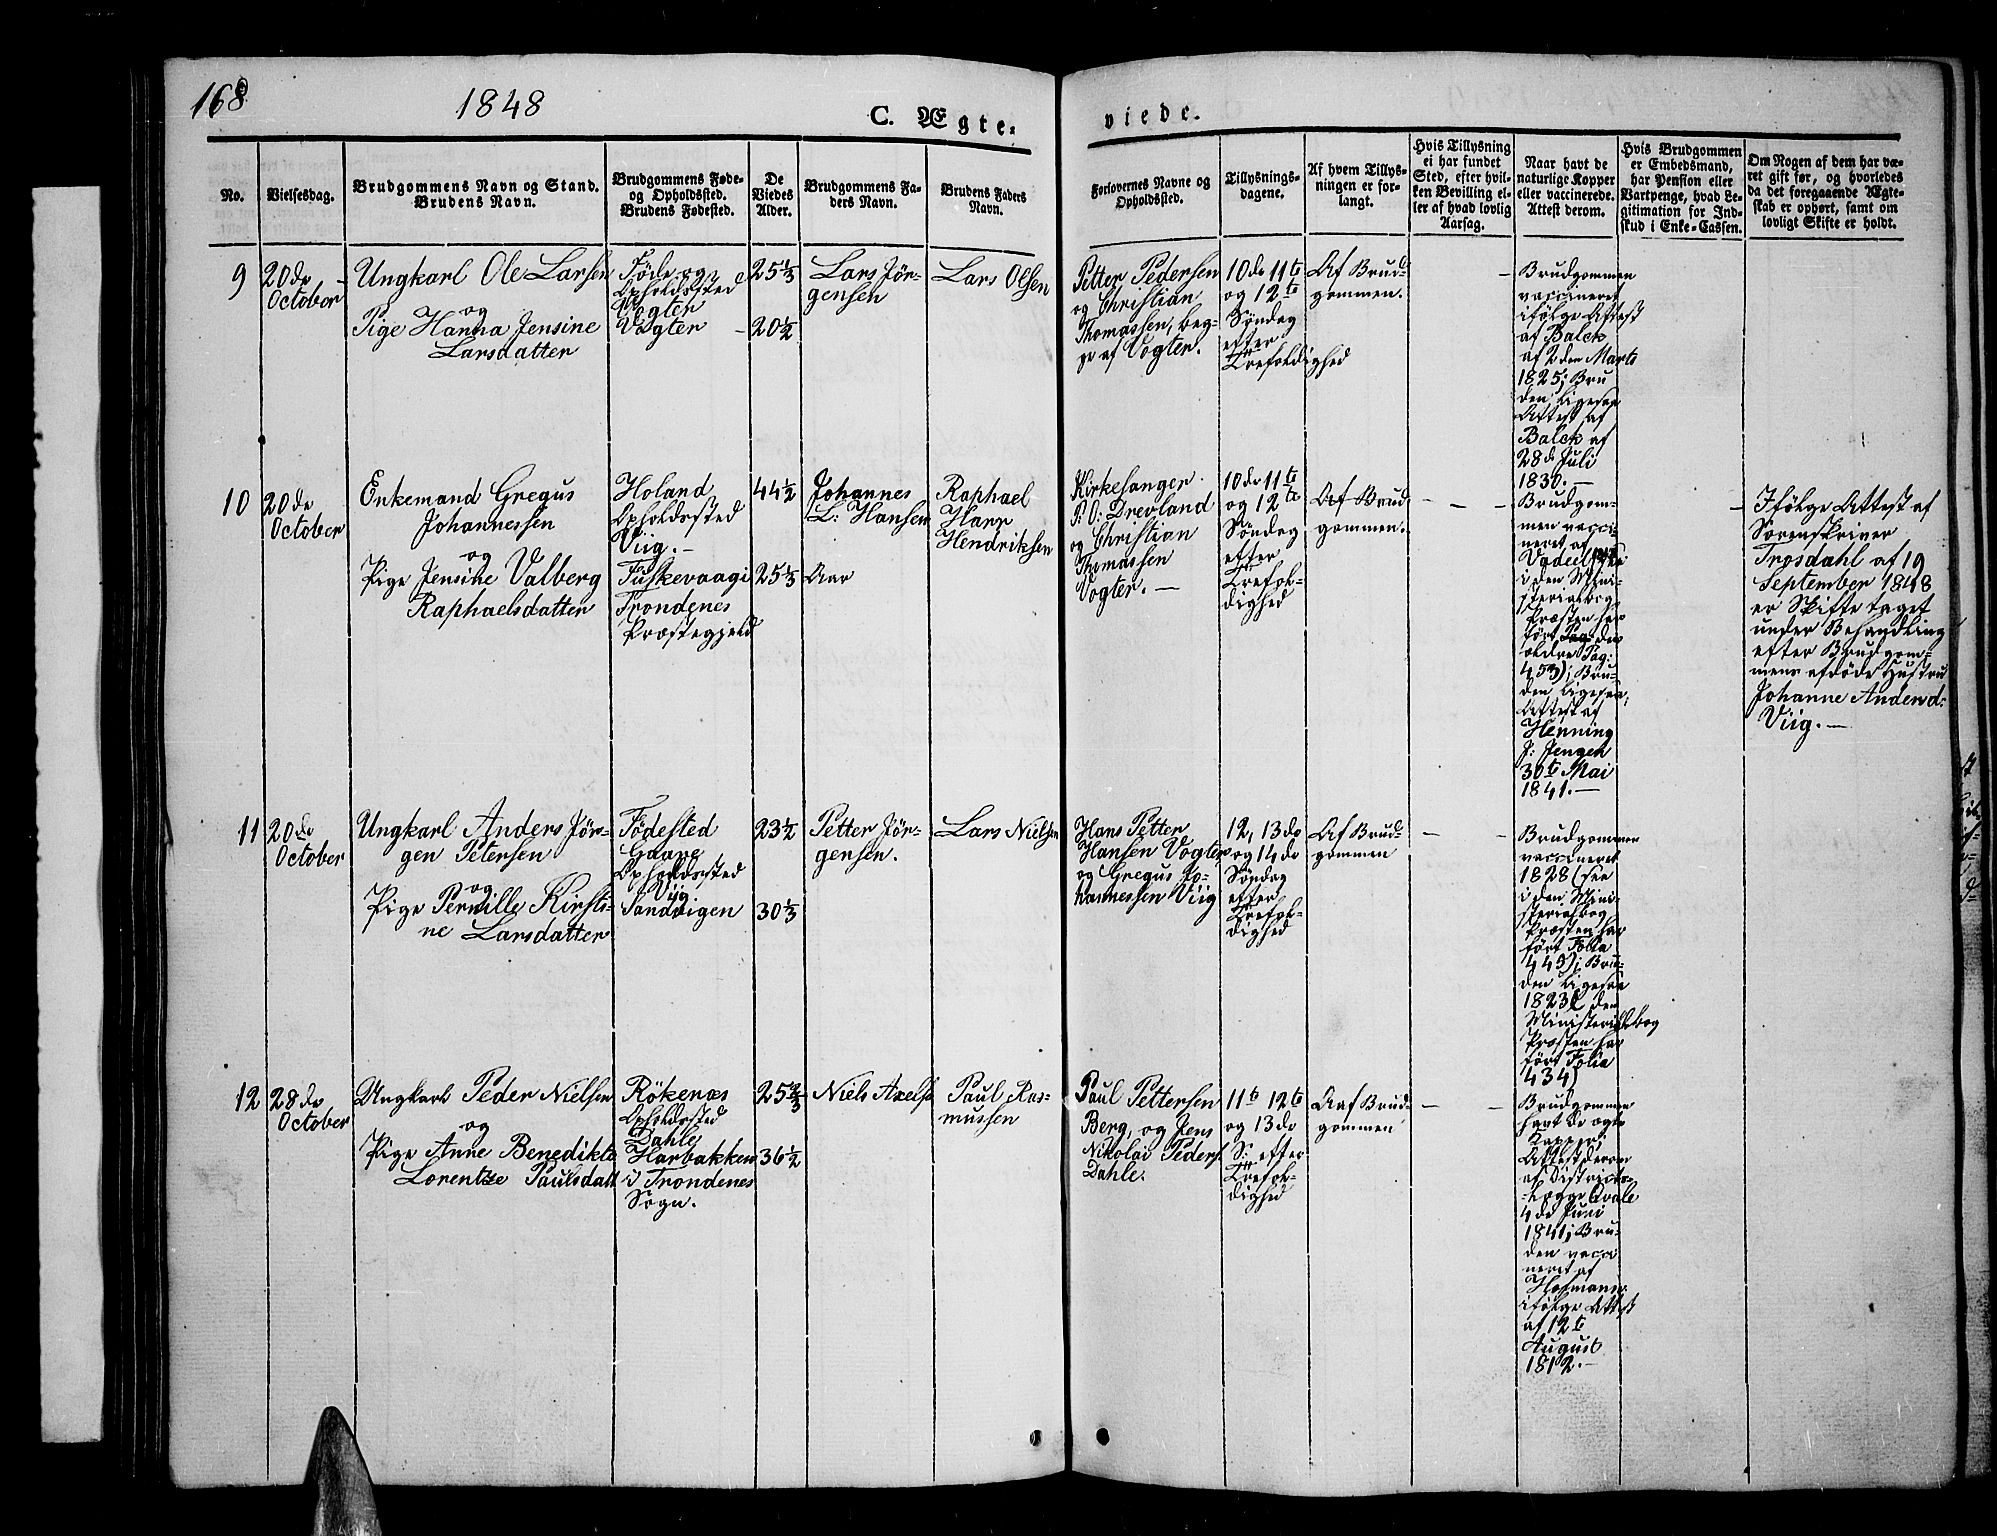 168
1848
C. Ægte-
viede.
No.
Vielsesdag.
Brudgommens Navn og Stand.
Brudens Navn.
Brudgommens Føde-
og Opholdssted.
Brudens Fødested.
De
Viedes
Alder.
Brudgommens Fa-
ders Navn.
Brudens Faders
Navn.
Forlovernes Navne og
Opholdssted.
Tillysnings-
dagene.
Af hvem Tillys-
ningen er for-
langt.
Hvis Tillysning
ei har fundet
Sted, efter hvil-
ken Bevilling el-
ler af hvad lovlig
Aarsag.
Naar havt de
naturlige Kopper
eller vaccinerede.
Attest derom.
Hvis Brudgommen
er Embedsmand,
har Pension eller
Vartpenge, hvad Le-
gitimation for Ind-
skud i Enke-Cassen.
Om Nogen af dem har væ-
ret gift før, og hvorledes
da det foregaaende Ægte-
skab er ophørt, samt om
lovligt Skifte er holdt.
9
20de
October
Ungkarl Ole Larsen
og
Pige Hanna Jensine
Larsdatter
Føde og
Opholdssted
Vogter
Vogter
25 1/3
20 1/2
Lars Jör-
gensen
Lars Olsen
Petter Pedersen
og Christian
Thomassen, beg-
ge af Vogter.
10de 11te
og 12te
Söndag
efter
Trefoldighed
Af Brud-
gommen.
Brudgommen
vaccineret
ifølge Attest
af Balck
af 2den Marts
1825; Bru
den ligesaa
Attest af
Balck af
28de Juli
1830.
10
20de
October
Enkemand Gregus
Johannessen
og
Pige Jensine Valberg
Raphaelsdatter
Holand
Opholdssted
Viig.
Fuskevaag i
Trondenes
Præstegjeld
44 1/2
25 1/3 Aar
Johannes
L: Hansen
Raphael
Hendriksen
Kirkesanger
P. O: Drevland
og Christian
Thomassen
Vogter.
10de 11te
og 12te
Söndag
efter
Trefol-
dighed
Af Brud
gommen.
Brudgom-
men vacci-
neret af
i den Mini-
sterialbog
Præsten har
ført Pag: den
ældre Pag:
453); Bru-
den ligesaa,
Attest af
Henning
J: Jensen
30te Mai
1841.
Ifölge Attest af
Sorenskriver
Trosdahl af 19
September 1848
er Skifte taget
under Behandling
efter Brudgom-
mens afdöde Hustru
Johanne Andersd:
Viig.
11
20de
October
Ungkarl Anders Jör-
gen Petersen
og
Pige Pernille Kirsti-
ne Larsdatter
Födested
Gaare
Opholdssted
Viig
Sandvigen
23 1/2
30 1/3
Petter Jör-
gensen.
Lars Nielsen
Hans Petter
Hansen Vogter
og Gregus Jo-
hannessen Viig
12, 13de
og 14de
Söndag
efter
Trefol-
dighed
Af Brud-
gommen
Brudgommen
vaccineret
1828 (see
i den Mini-
sterialbog
Præsten har
ført Folia
449); Bru-
den ligesaa
1823 ( den
Ministerialbog
Præsten har
ført Folia
434)
12
28de
October
Ungkarl Peder Nielsen
og
Pige Anne Benedikte
Lorentze Paulsdatt
Rökenæs
Opholdssted
Dahle
Harbakken
i Trondenes
Sogn.
25 2/3
36 1/2
Niels Axels
Paul Ras-
mussen
Paul Pettersen
Berg, og Jens
Nikolai Peders
Dahle.
11te 12te
og 13de
S: efter
Trefol-
dighed
Af Brud-
gommen
Brudgommen
havt de ægte
Kopper;
Attest derom
af Districts-
læge Qvale
4de Juni
1841; Bru-
den vacci
neret af
Hofmann
ifølge Attest
af 12te
August
1812.